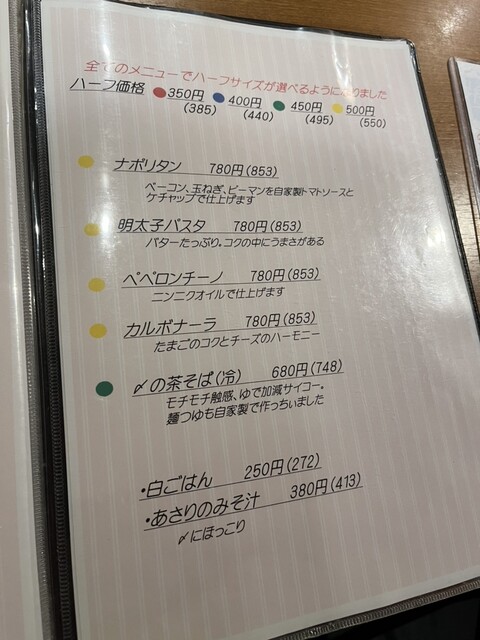 全てのメニューでハーフサイズが選べるようになりました
ハーフ価格 350円 400円 450円 500円
(385) (440) (495) (550)
ナポリタン 780円(853)
ベーコン、玉ねぎ、ピーマンを自家製トマトソースと
ケチャップで仕上げます
明太子パスタ 780円(853)
バターたっぷり。コクの中にうまさがある
ペペロンチーノ 780円(853)
ニンニクオイルで仕上げます
カルボナーラ 780円(853)
たまごのコクとチーズのハーモニー
〆の茶そば(冷) 680円(748)
モチモチ触感、ゆで加減サイコー。
麺つゆも自家製で作っちぃました
・白ごはん 250円(272)
・あさりのみそ汁 380円(413)
〆にほっこり